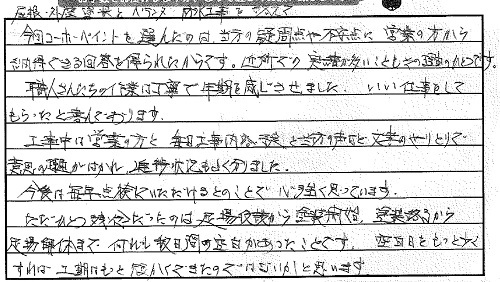 屋根・外壁塗装とベランダ防水工事を終えて
今回コーホーペイントを選んだのは、当方の疑問点や不安点に営業の方から
納得できる回答を得られたからです。近所での実績が多いこともその理由のひとつです。
職人さんたちの作業は丁寧で年期を感じさせました。いい仕事をして
もらったと喜んでおります。
工事中は営業の方と毎日工事内容・予定と当方の声など文書のやりとりで
意思の疎通がはかれ、進捗状況もよく分りました。
今後は毎年点検していただけるとのことで心強く思っています。
ただひとつ残念だったのは足場設置から塗装開始、塗装終了から
足場解体まで何れも数日間の空白があったことです。空白日をもっと少く
すれば工期はもっと短かくできたのではないかと思います。